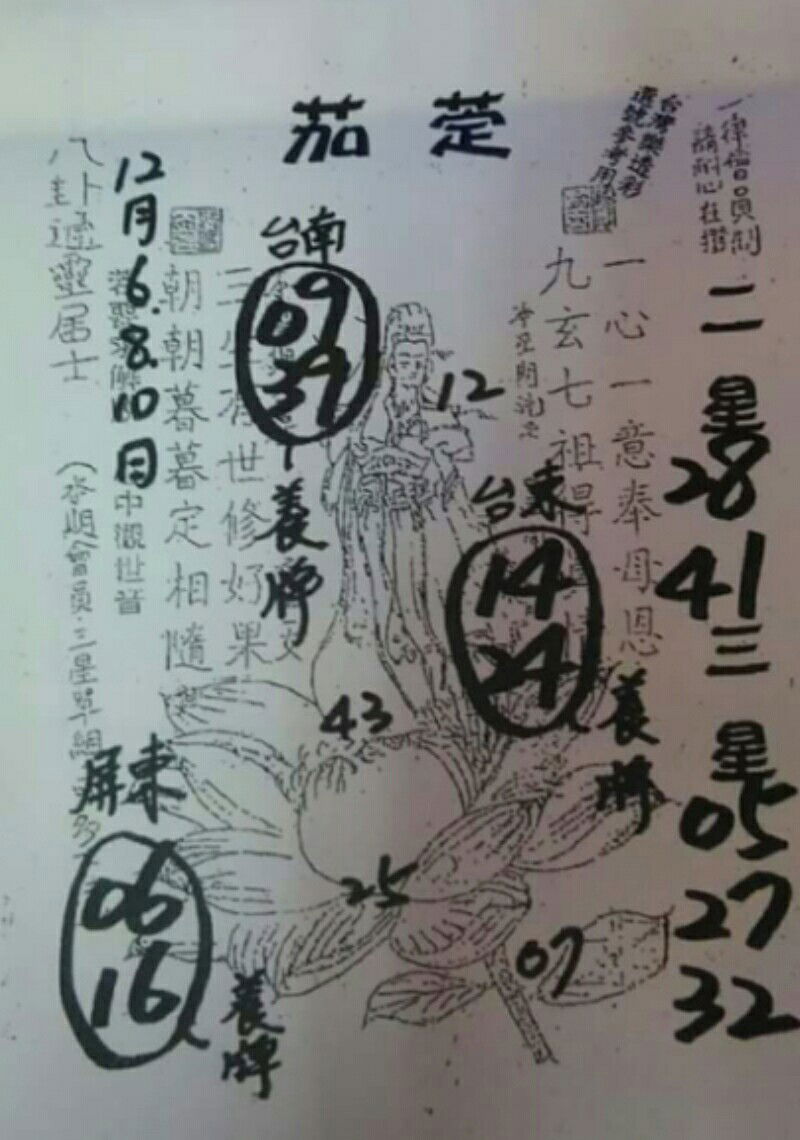 茄萣
台灣樂透彩
選號參考用
一律會員制
一心一意奉母恩
九玄七祖得
三生有世修好果
朝朝暮暮定相隨
中觀世音
八卦通靈居士
12月6.8.10日
台南
09
39
養牌
12
台東
14
24
養牌
43
25
07
屏東
06
16
養牌
二星
28
41
三星
05
27
32